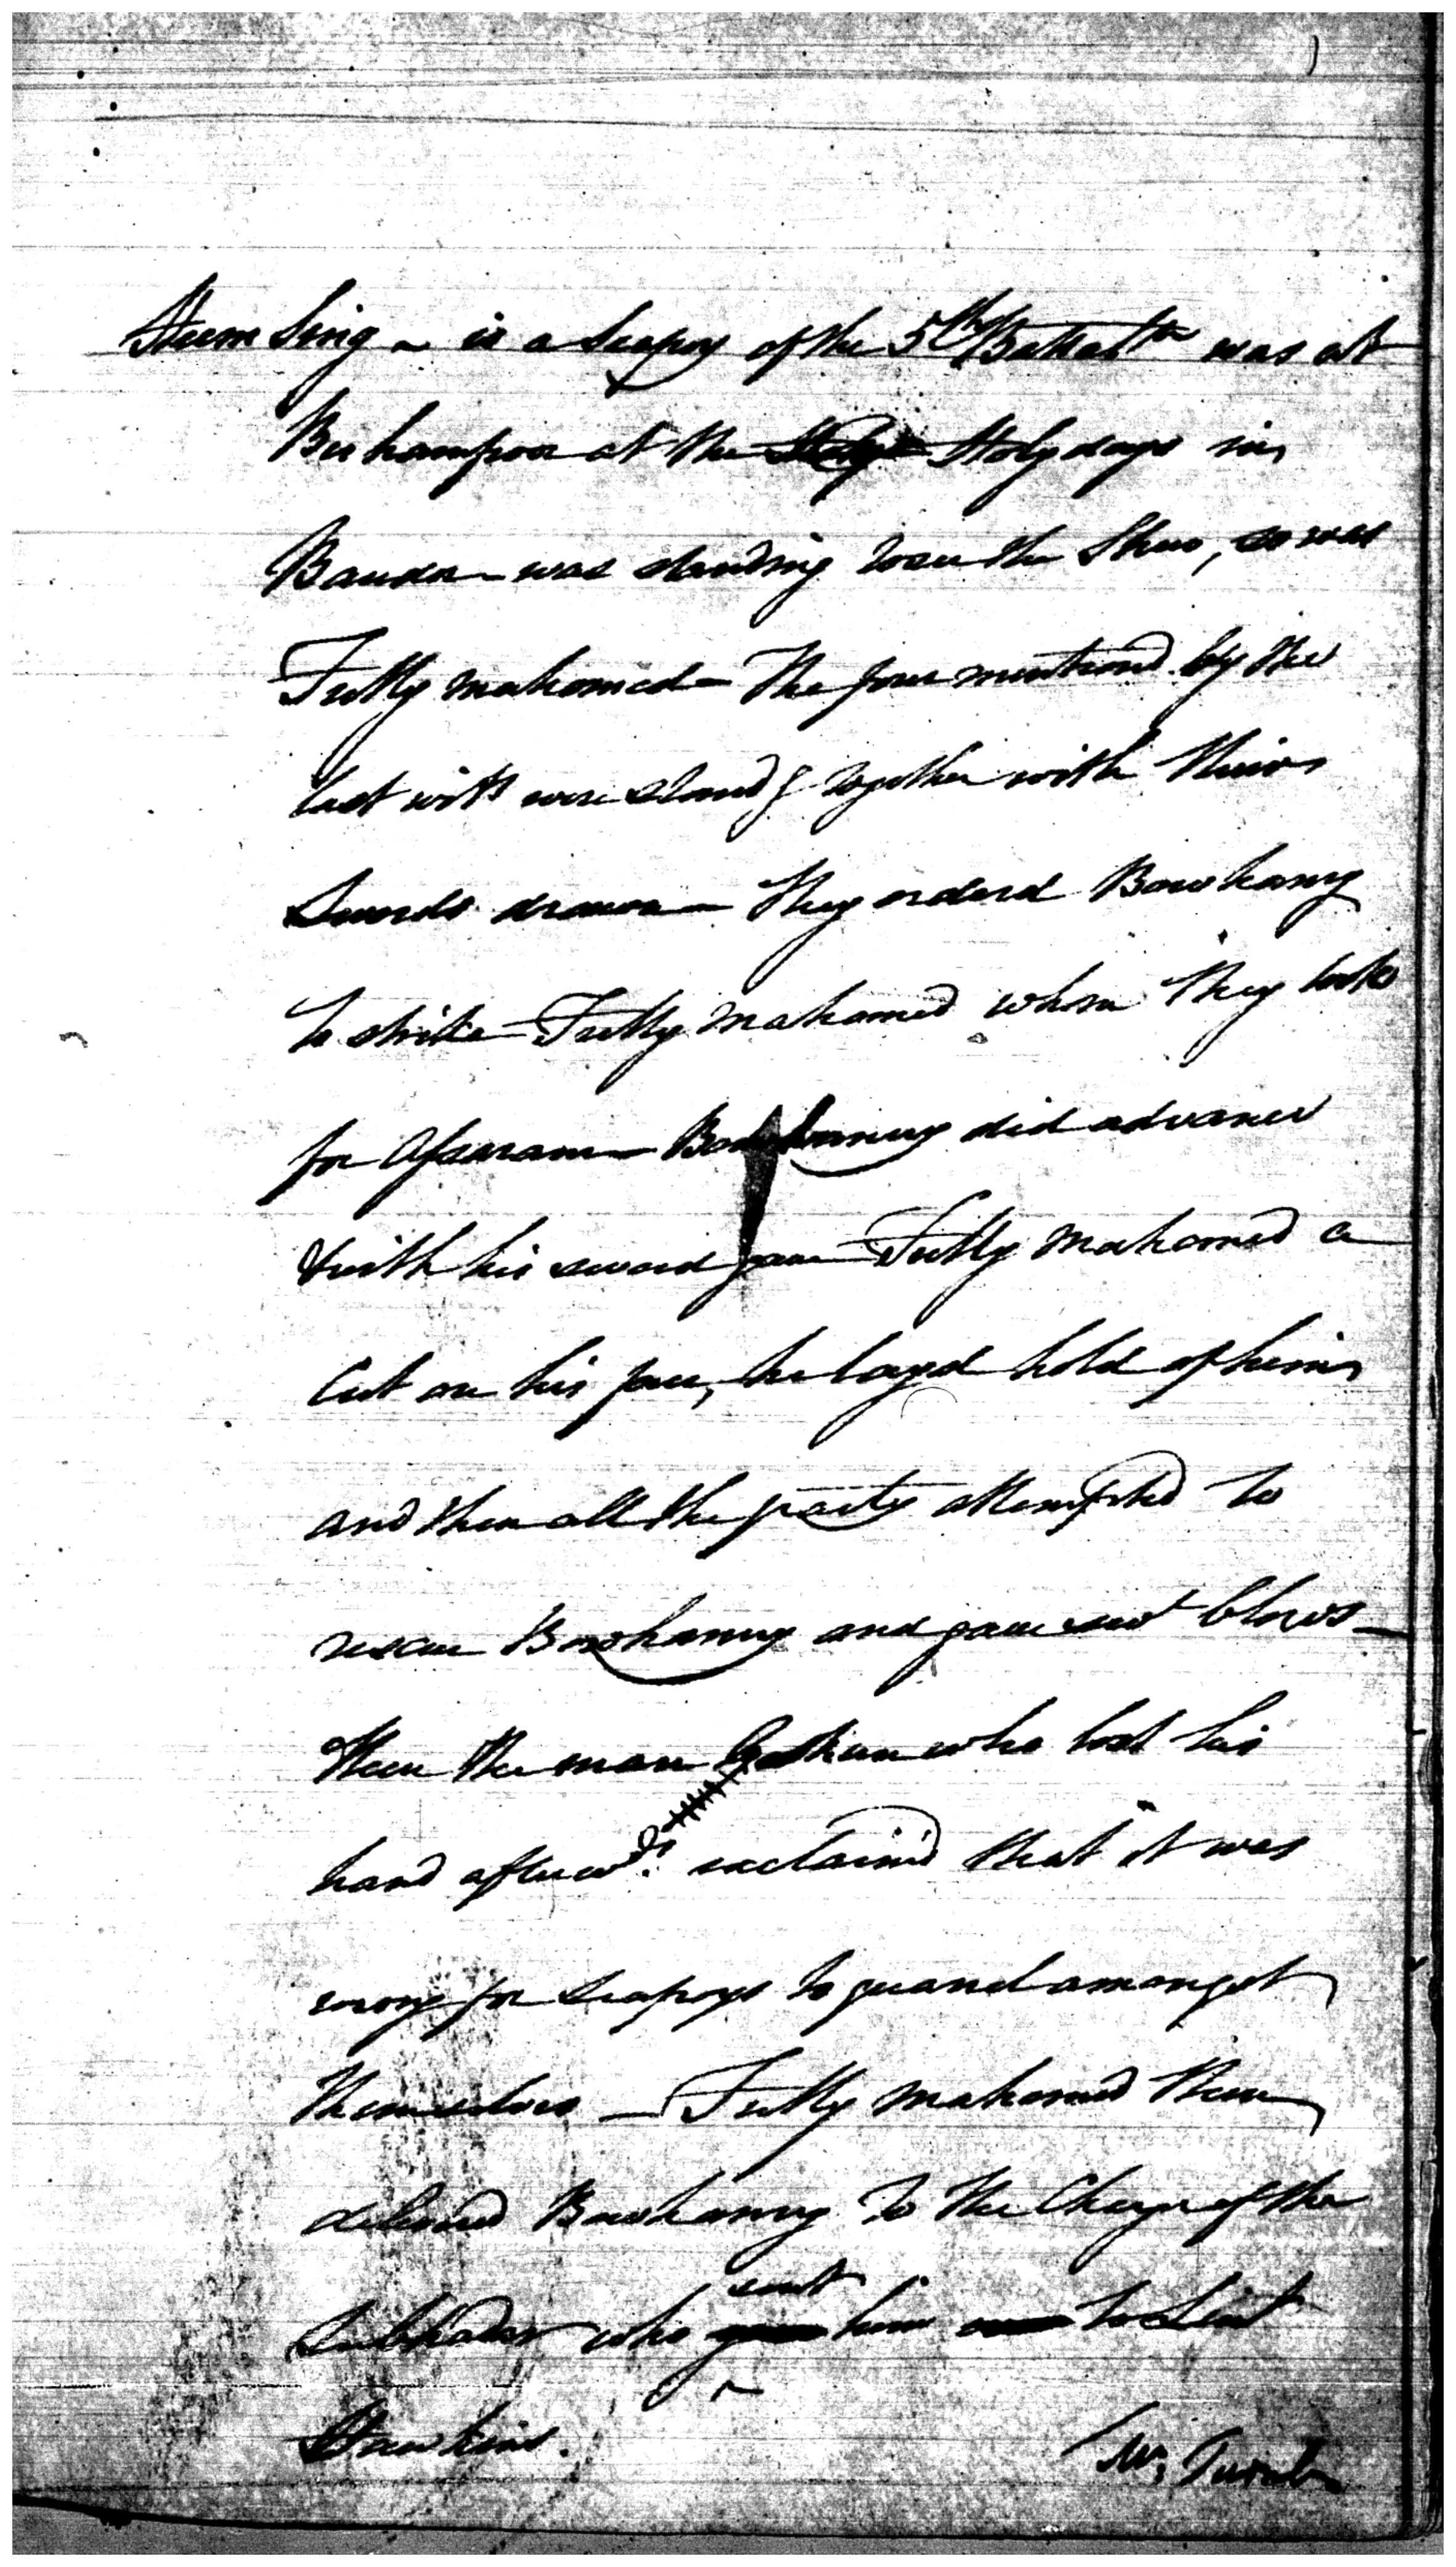 Heem Sing ~ is a Seapoy of the 5th Battaln was at
Burhampoor at the Holydays in
was standing to see the Shew, so was
Futty Mahomed – The four mentioned by the
last witss were standg together with their
Swords drawn – They orderd Bowhanny
to strike Futty Mahomed whom they took
for – Bowhanny did advance
& with his sword gave Futty Mahomed a
Cut on his face, he layed hold of him,
and then all the party attempted to
rescue Bowhanny and gave out blows –
Then the man who lost his
hand afterwds exclaim'd that it was
wrong for Seapoys to quarrel amongst
themselves – Futty Mahomed then
deliverd Bowhanny to the Charge of the
Subhadar who sent him to Lieut
Hawkins.
Mr.